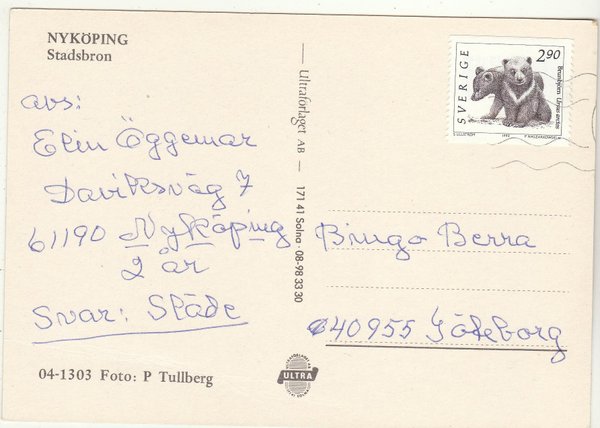 NYKÖPING
Stadsbron
avs:
Elin Öggemar
Daviksväg 7
61190 Nyköping
2 år
Svar: Släde
04-1303 Foto: P Tullberg
Ultraförlaget AB — 171 41 Solna · 08-98 33 30
ULTRA
SVERIGE
2.90
Brunbjörn Ursus arctos
Bingo Berra
40955 Göteborg